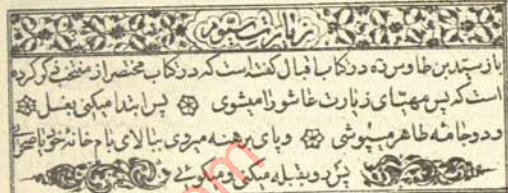 زیارت
باز سید بن طاوس ره در کتاب اقبال گفته است که در کتاب مختصر از منتخب ذکر کرده
است که پس مهیای زیارت عاشورا میشوی پس ابتدا میکنی بغسل
و دو جامه طاهر میپوشی و پای برهنه میروی ببالای بام خانه خود یا صحرائی
پس رو بقبله میکنی و میگوئی
com